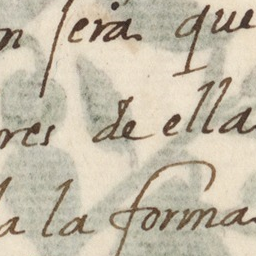 n sera que
res de ella
a la forma